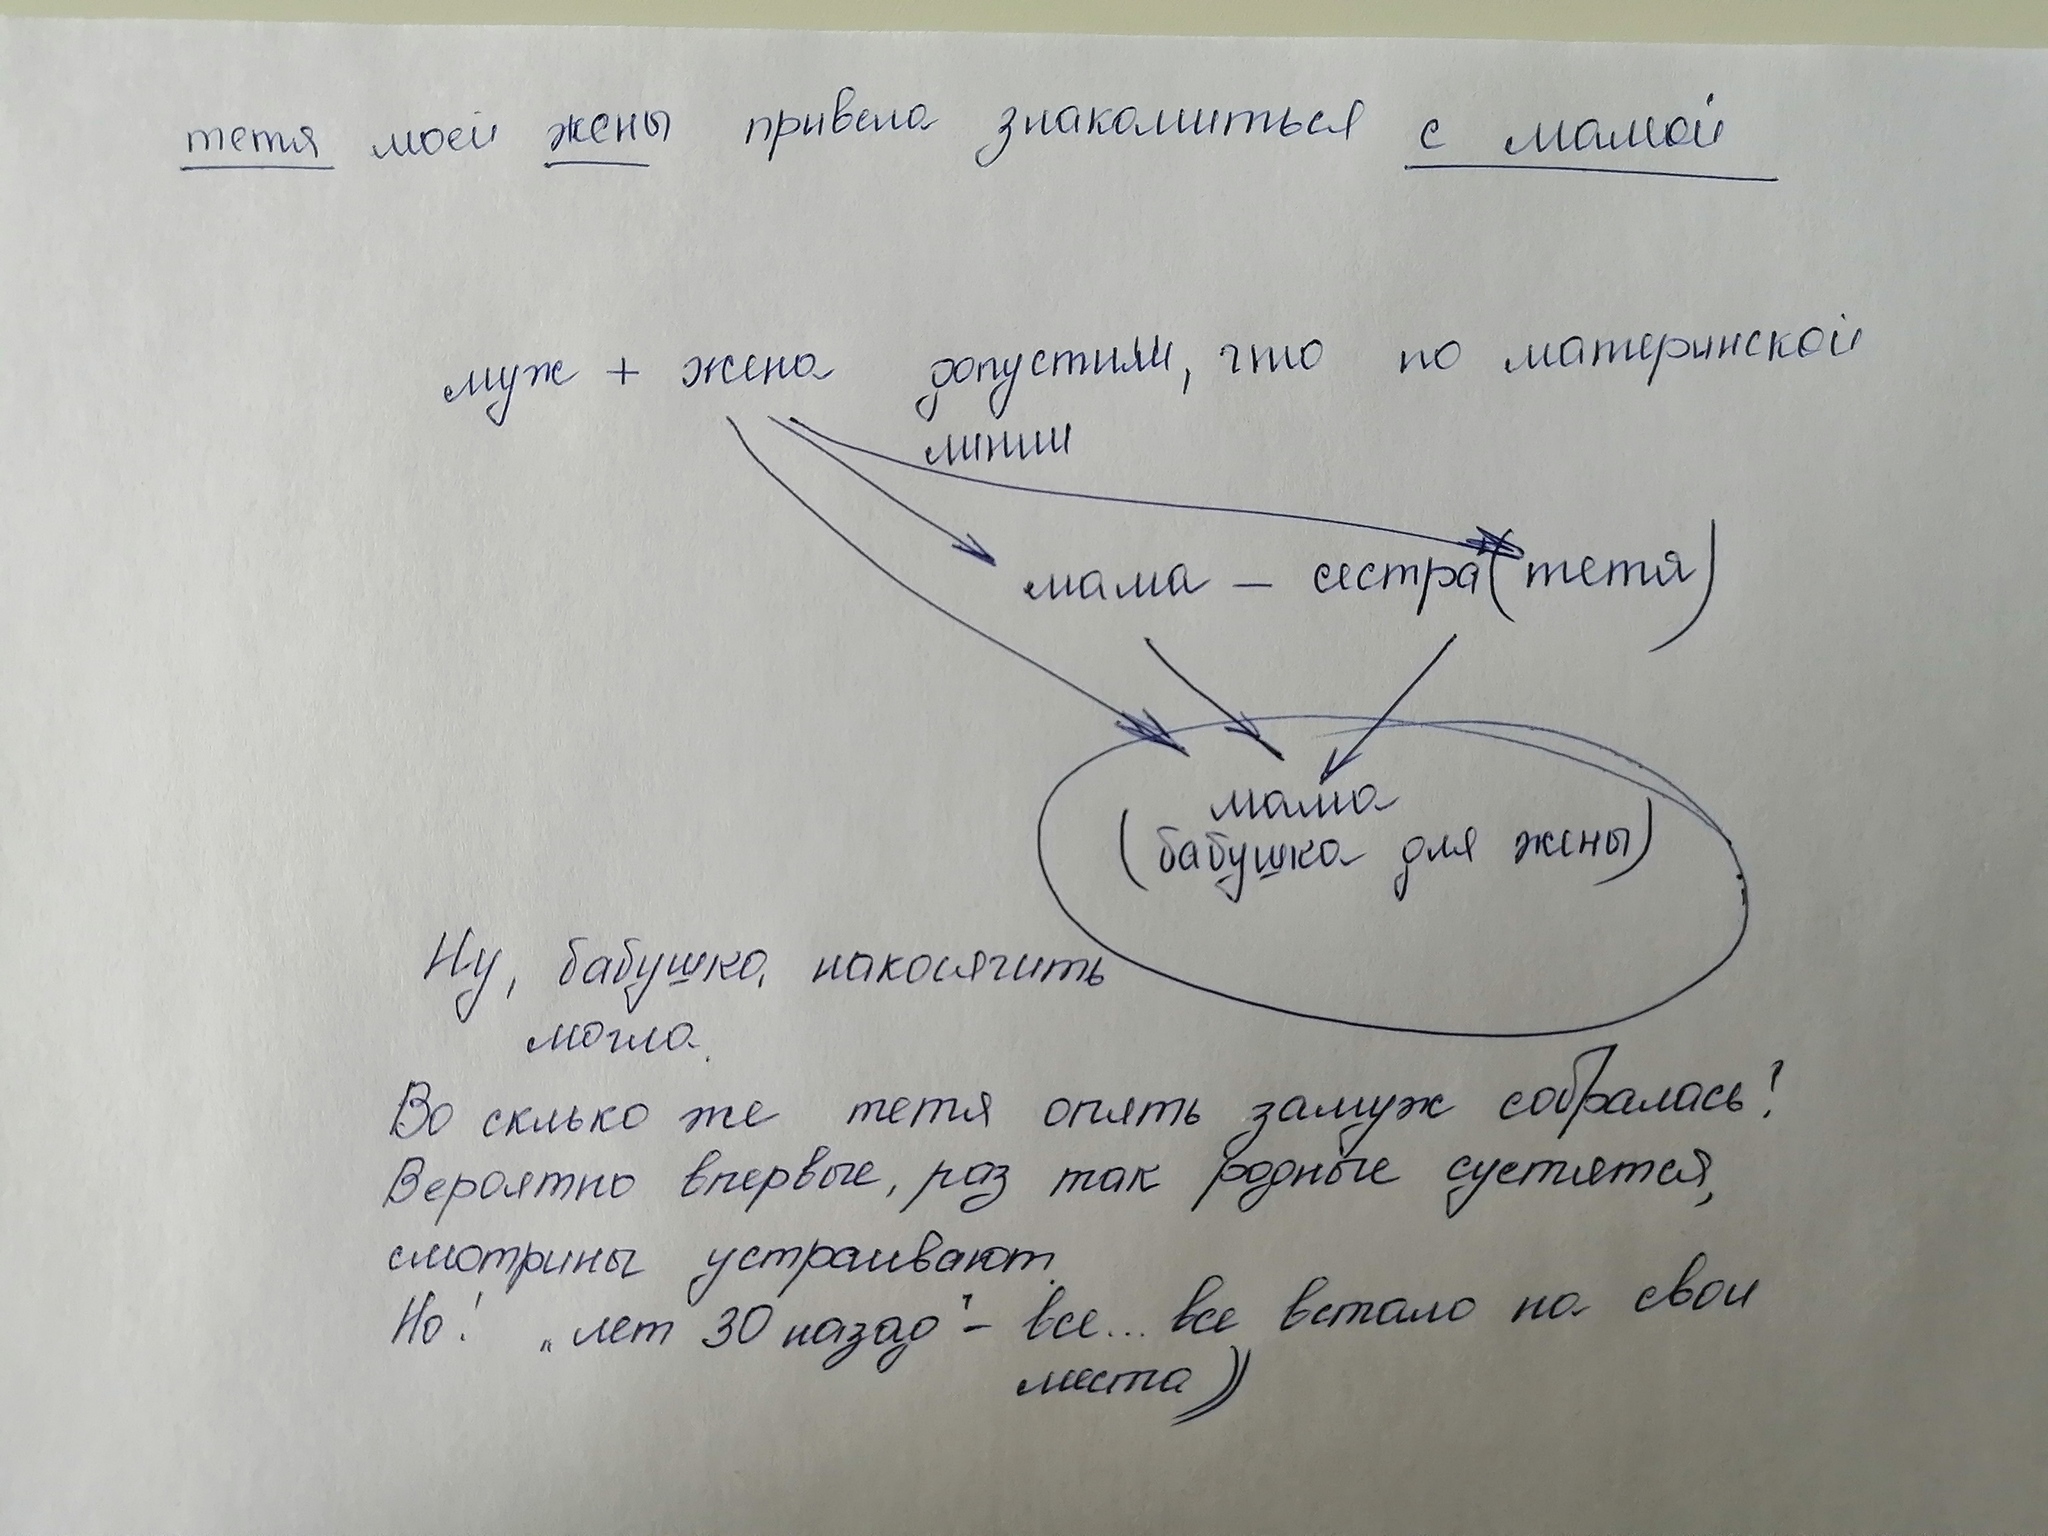 тетя моей жены привела знакомиться с мамой
муж + жена допустим, что по материнской
линии
мама – сестра (тетя)
мама
(бабушка для жены)
Ну, бабушка, накосячить
могла.
Во склько же тетя опять замуж собралась?
Вероятно впервые, раз так родные суетятся,
смотрины устраивают.
Но! „лет 30 назад" – все... все встало на свои
места))